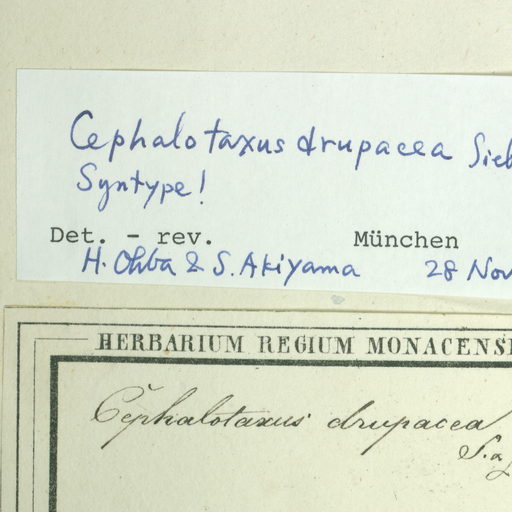 Cephalotaxus drupacea Sieb
Syntype!
Det. - rev. München
H. Ohba & S. Akiyama 28 Nov
HERBARIUM REGIUM MONACENS
Cephalotaxus drupacea
S. a